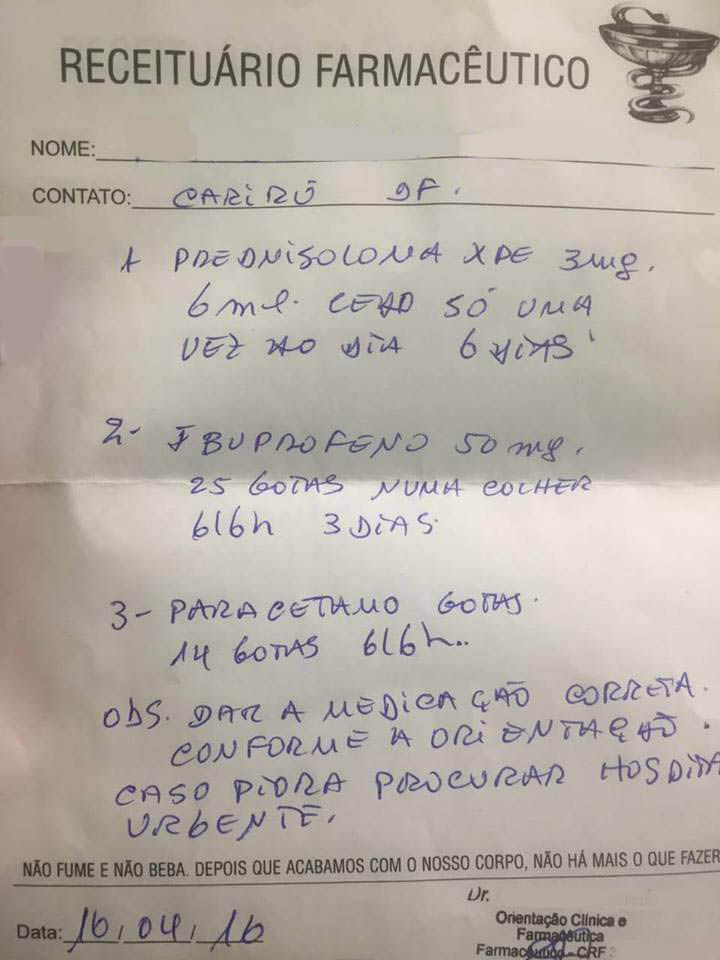 RECEITUÁRIO FARMACÊUTICO
NOME:
CONTATO: CARIRÚ DF.
1 PREDNISOLONA XPE 3mg.
6ml. CEDO SÓ UMA
VEZ AO DIA 6 DIAS
2- IBUPROFENO 50mg.
25 GOTAS NUMA COLHER
6/6h 3 DIAS.
3- PARACETAMO GOTAS.
14 GOTAS 6/6h..
OBS. DAR A MEDICAÇÃO CORRETA.
CONFORME A ORIENTAÇÃO.
CASO PIORA PROCURAR HOSPITA
URGENTE.
NÃO FUME E NÃO BEBA. DEPOIS QUE ACABAMOS COM O NOSSO CORPO, NÃO HÁ MAIS O QUE FAZER
Data: 16/04/16
Dr.
Orientação Clínica e
Farmacêutica
Farmacêutico - CRF